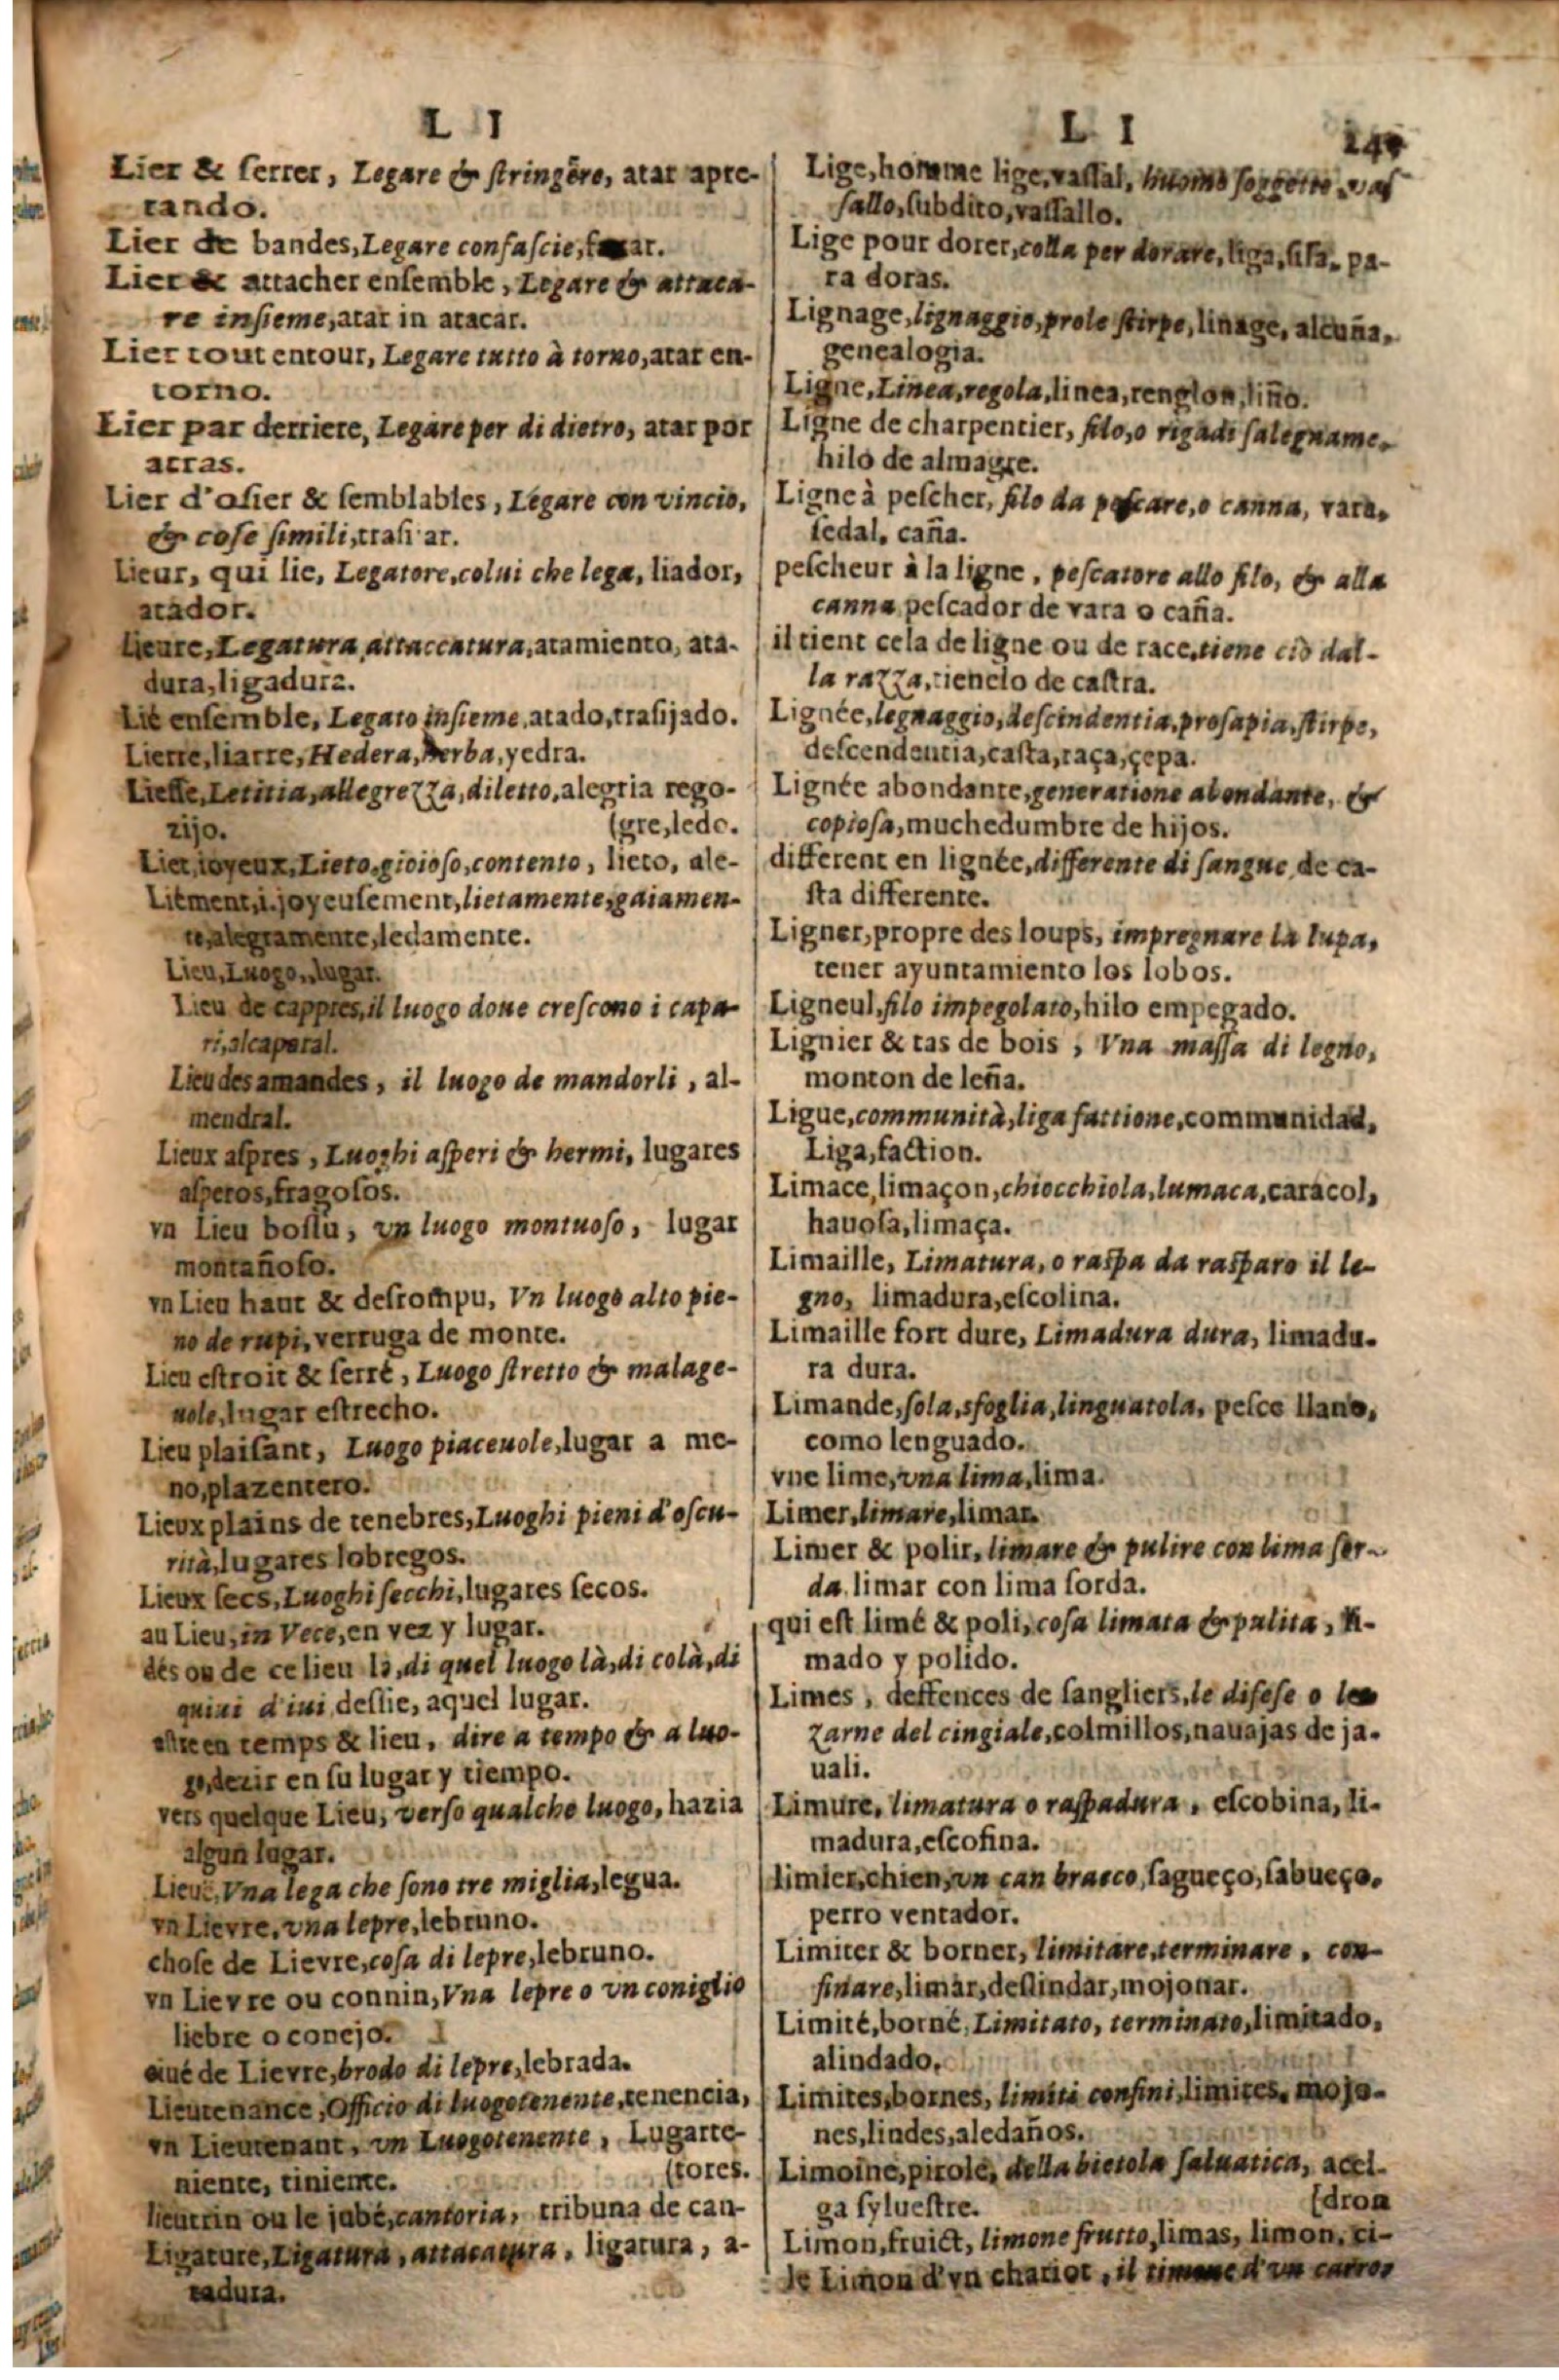 L I
Lier & ſerrer, Legare & ſtringēre, atar apre-
tando.
Lier de bandes, Legare confaſcie,
Lier & attacher enſemble, Legare & attaca-
re inſieme, atar in atacar.
Lier tout entour, Legare tutto à torno, atar en-
torno.
Lier par derriere, Legare per di dietro, atar por
atras.
Lier d'oſier & ſemblables, Legare con vincio,
& coſe ſimili,
Lieur, qui lie, Legatore, colui che lega, liador,
atador.
Lieure, Legatura attaccatura, atamiento, ata-
dura, ligadura.
Lié enſemble, Legato inſieme, atado, traſijado.
Lierre, liarre, Hedera, herba, yedra.
Lieſſe, Letitia, allegrezza, diletto, alegria rego-
zijo. (gre, ledo.
Liet, ioyeux, Lieto, gioioſo, contento, lieto, ale-
Liément, i. joyeuſement, lietamente, gaiamen-
te, alegramente, ledamente.
Lieu, Luogo, lugar.
Lieu de cappres, il luogo doue creſcono i capa-
ri, alcaparal.
Lieu des amandes, il luogo de mandorli, al-
mendral.
Lieux aſpres, Luoghi aſperi & hermi, lugares
aſperos, fragoſos.
vn Lieu boſſu, vn luogo montuoſo, lugar
montañoſo.
vn Lieu haut & deſrompu, Vn luogo alto pie-
no de rupi, verruga de monte.
Lieu eſtroit & ſerré, Luogo ſtretto & malage-
uole, lugar eſtrecho.
Lieu plaiſant, Luogo piaceuole, lugar a me-
no, plazentero.
Lieux plains de tenebres, Luoghi pieni d'oſcu-
rità, lugares lobregos.
Lieux ſecs, Luoghi ſecchi, lugares ſecos.
au Lieu, in Vece, en vez y lugar.
dés ou de ce lieu là, di quel luogo là, di colà, di
quiui d'iui deſſie, aquel lugar.
eſtre en temps & lieu, dire a tempo & a luo-
go, dezir en ſu lugar y tiempo.
vers quelque Lieu, verſo qualche luogo, hazia
algun lugar.
Lieuë, Vna lega che ſono tre miglia, legua.
vn Lievre, vna lepre, lebruno.
choſe de Lievre, coſa di lepre, lebruno.
vn Lievre ou connin, Vna lepre o vn coniglio
liebre o conejo.
ciué de Lievre, brodo di lepre, lebrada.
Lieutenance, Officio di luogotenente, tenencia,
vn Lieutenant, vn Luogotenente, Lugarte-
niente, tiniente. (tores.
lieutrin ou le jubé, cantoria, tribuna de can-
Ligature, Ligatura, attacatura, ligatura, a-
tadura.
L I
Lige, homme lige, vaſſal, huomo ſoggetto, vaſ
ſallo, ſubdito, vaſſallo.
Lige pour dorer, colla per dorare, liga, ſiſa, pa-
ra doras.
Lignage, lignaggio, prole ſtirpe, linage, alcuña,
genealogia.
Ligne, Linea, regola, linea, renglon, liño.
Ligne de charpentier, filo, o riga di falegname,
hilo de almagre.
Ligne à peſcher, filo da peſcare, o canna, vara,
ſedal, caña.
peſcheur à la ligne, peſcatore allo filo, & alla
canna, peſcador de vara o caña.
il tient cela de ligne ou de race, tiene ciò dal-
la razza, tienelo de caſtra.
Lignée, legnaggio, deſcindentia, proſapia, ſtirpe,
deſcendentia, caſta, raça, çepa.
Lignée abondante, generatione abondante, &
copioſa, muchedumbre de hijos.
different en lignée, differente di ſangue, de ca-
ſta differente.
Ligner, propre des loups, impregnare la lupa,
tener ayuntamiento los lobos.
Ligneul, filo impegolato, hilo empegado.
Lignier & tas de bois, Vna maſſa di legno,
monton de leña.
Ligue, communità, liga fattione, communidad,
Liga, faction.
Limace, limaçon, chiocchiola, lumaca, caracol,
hauoſa, limaça.
Limaille, Limatura, o raſpa da raſpare il le-
gno, limadura, eſcolina.
Limaille fort dure, Limadura dura, limadu-
ra dura.
Limande, ſola, sfoglia, linguatola, peſce llano,
como lenguado.
vne lime, vna lima, lima.
Limer, limare, limar.
Limer & polir, limare & pulire con lima ſor-
da, limar con lima ſorda.
qui eſt limé & poli, coſa limata & pulita, li-
mado y polido.
Limes, deffences de ſangliers, le difeſe o
zarne del cingiale, colmillos, nauajas de ja-
uali.
Limure, limatura o raſpadura, eſcobina, li-
madura, eſcofina.
limier, chien, vn can bracco, ſagueço, ſabueço,
perro ventador.
Limiter & borner, limitare, terminare, con-
finare, limar, deſlindar, mojonar.
Limité, borné, Limitato, terminato, limitado,
alindado.
Limites, bornes, limiti confini, limites, mojo-
nes, lindes, aledaños.
Limoine, pirole, della bietola ſaluatica, acel-
ga ſylueſtre. (dron
Limon, fruict, limone frutto, limas, limon, ci-
le Limon d'vn chariot, il timone d'vn carro,